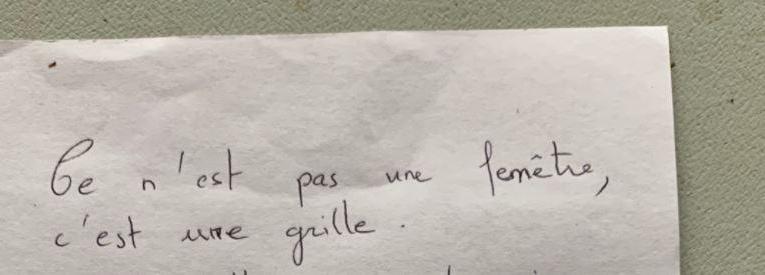 Ce n'est pas une fenêtre,
c'est une grille.